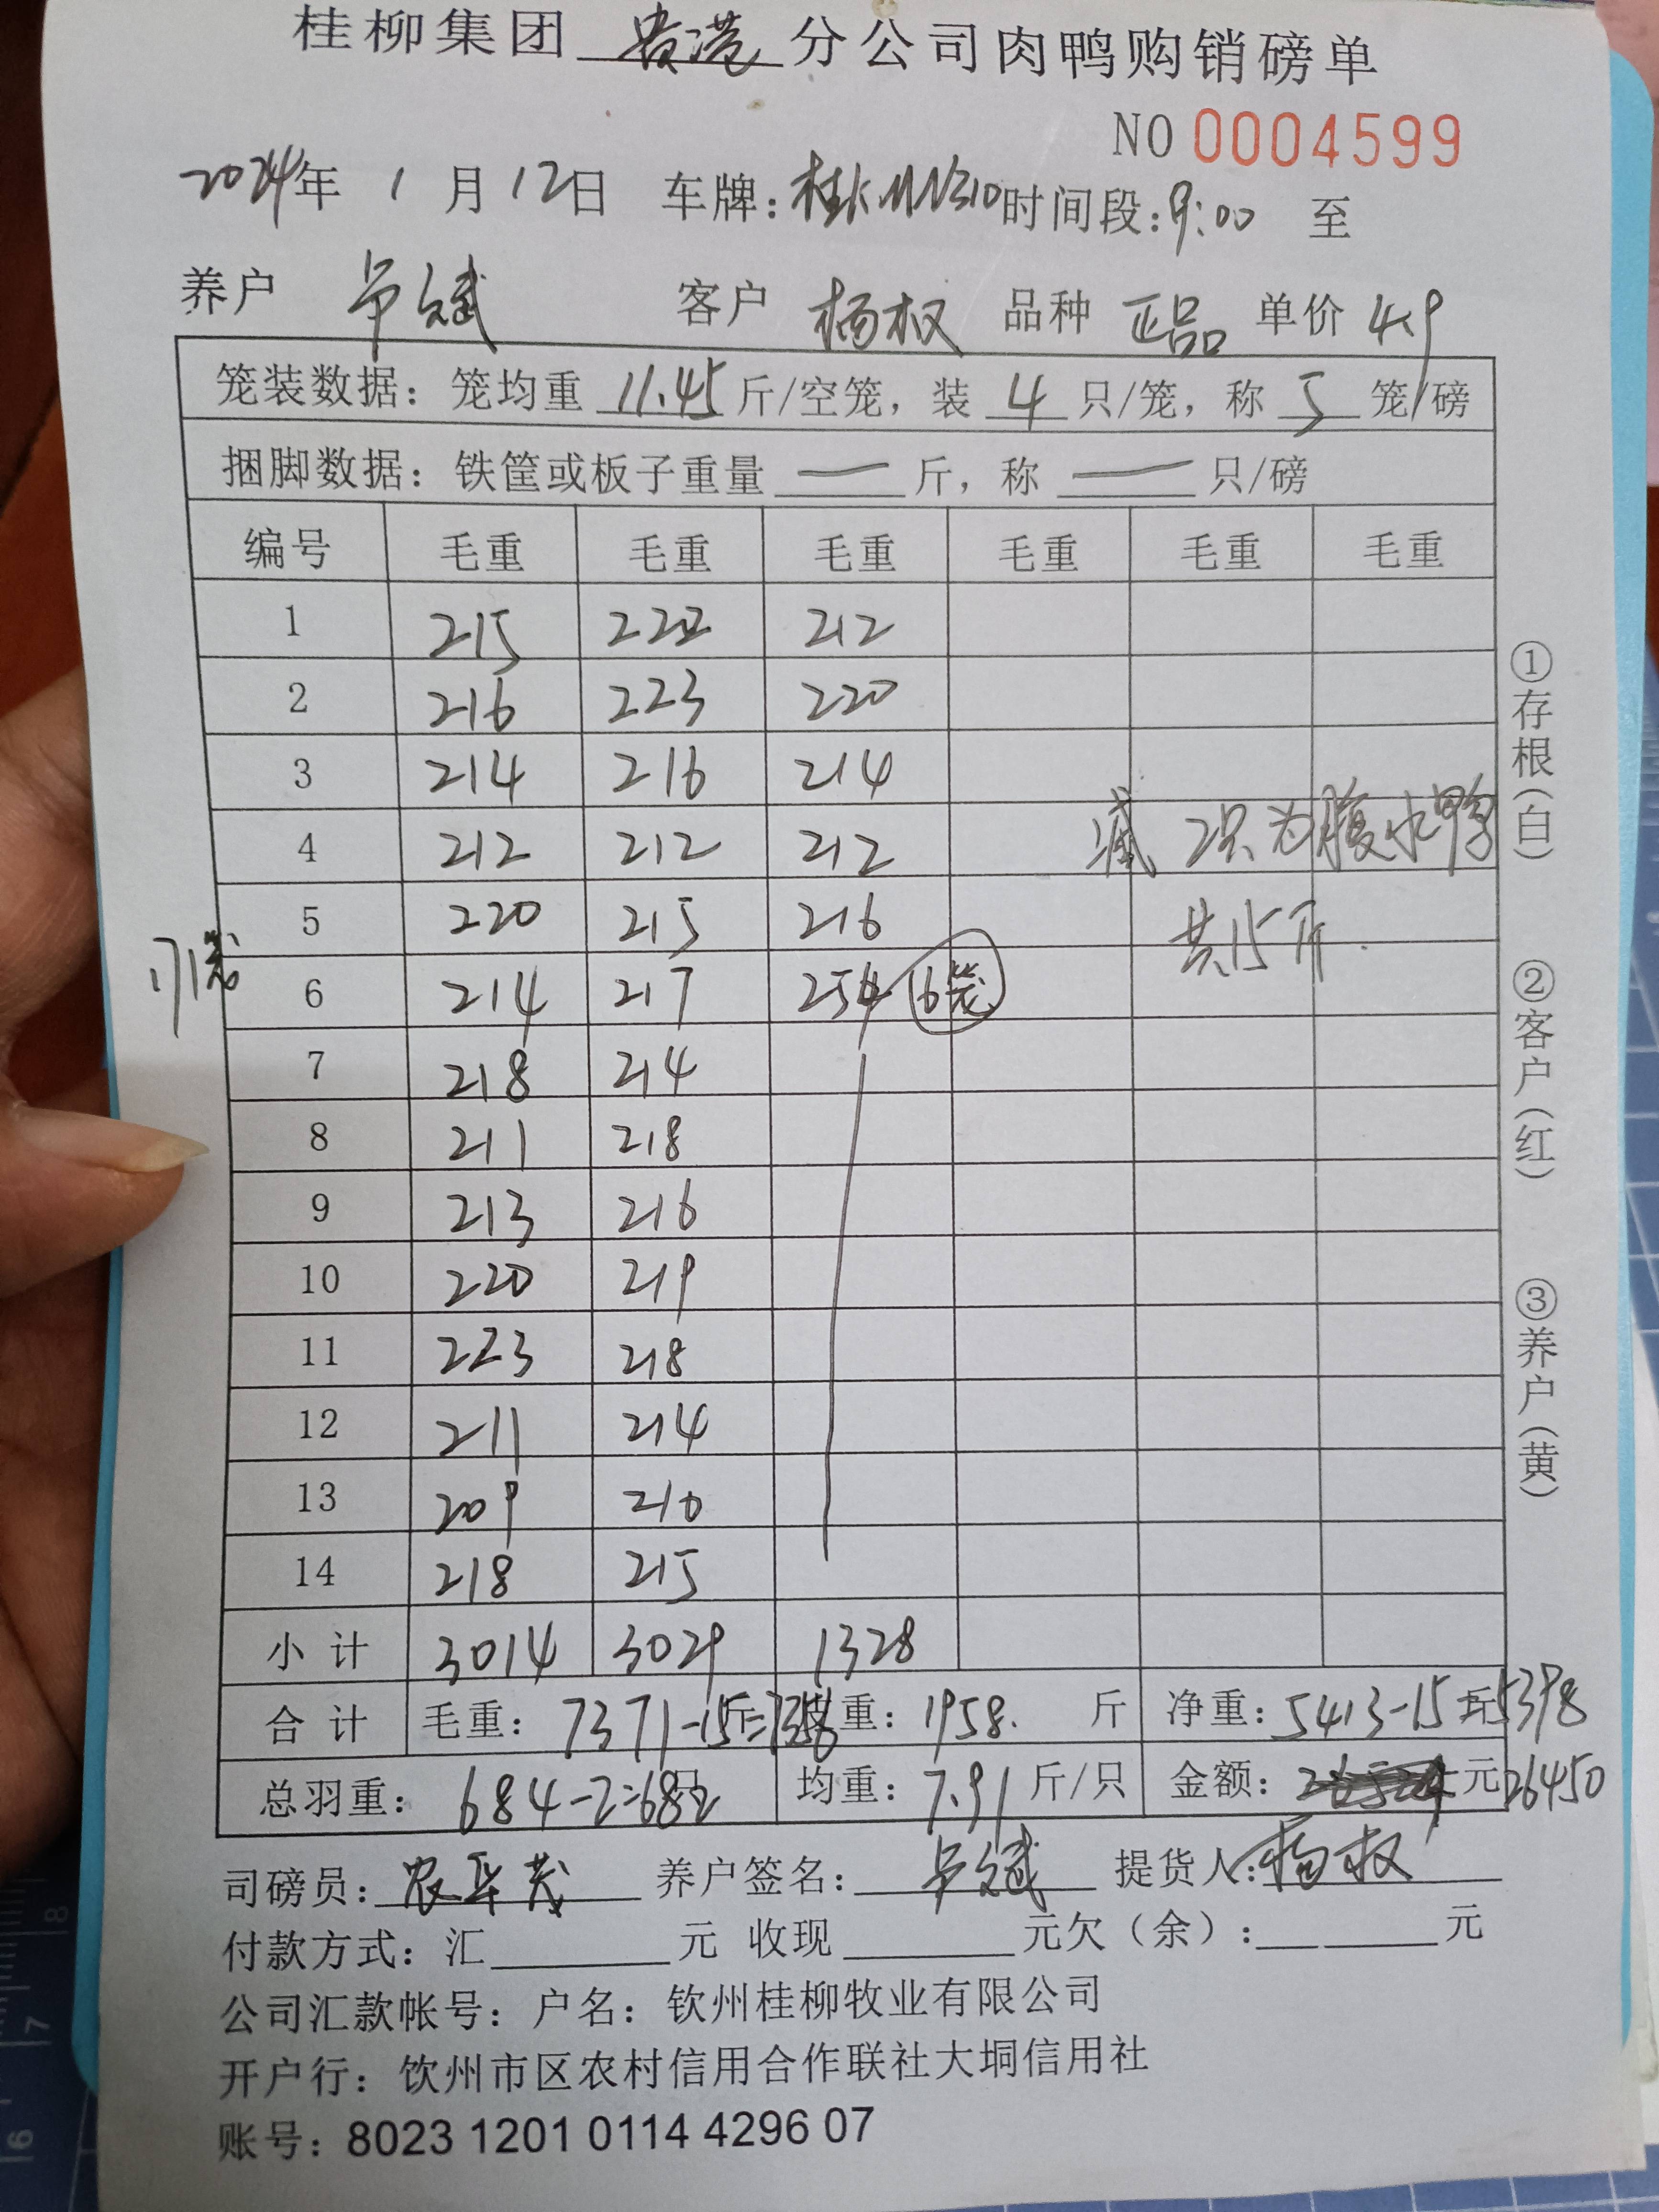 桂柳集团 贵港 分公司肉鸭购销磅单
NO 0004599
2024年 1 月 12日 车牌: 时间段: 9:00 至
养户 客户 杨权 品种 正品 单价 4.9
笼装数据: 笼均重 11.45 斤/空笼, 装 4 只/笼, 称 5 笼/磅
捆脚数据: 铁筐或板子重量 — 斤, 称 — 只/磅
编号 毛重 毛重 毛重 毛重 毛重 毛重
1 215 222 212
2 216 223 220
3 214 216 214
4 212 212 212 减 2只为腹水鸭
5 220 215 216 共15斤.
171笼 6 214 217 254 16笼
7 218 214
8 211 218
9 213 216
10 220 219
11 223 218
12 211 214
13 209 210
14 218 215
小 计 3014 3029 1328
合 计 毛重: 7371-15=7356 斤 皮重: 1958. 斤 净重: 5413-15=5398 斤
总羽重: 684-2=682 只 均重: 7.91 斤/只 金额: 元 26450
司磅员: 养户签名: 提货人: 杨权
付款方式: 汇 元 收现 元欠(余): 元
公司汇款帐号: 户名: 钦州桂柳牧业有限公司
开户行: 钦州市区农村信用合作联社大垌信用社
账号: 8023 1201 0114 4296 07
①存根(白)
②客户(红)
③养户(黄)